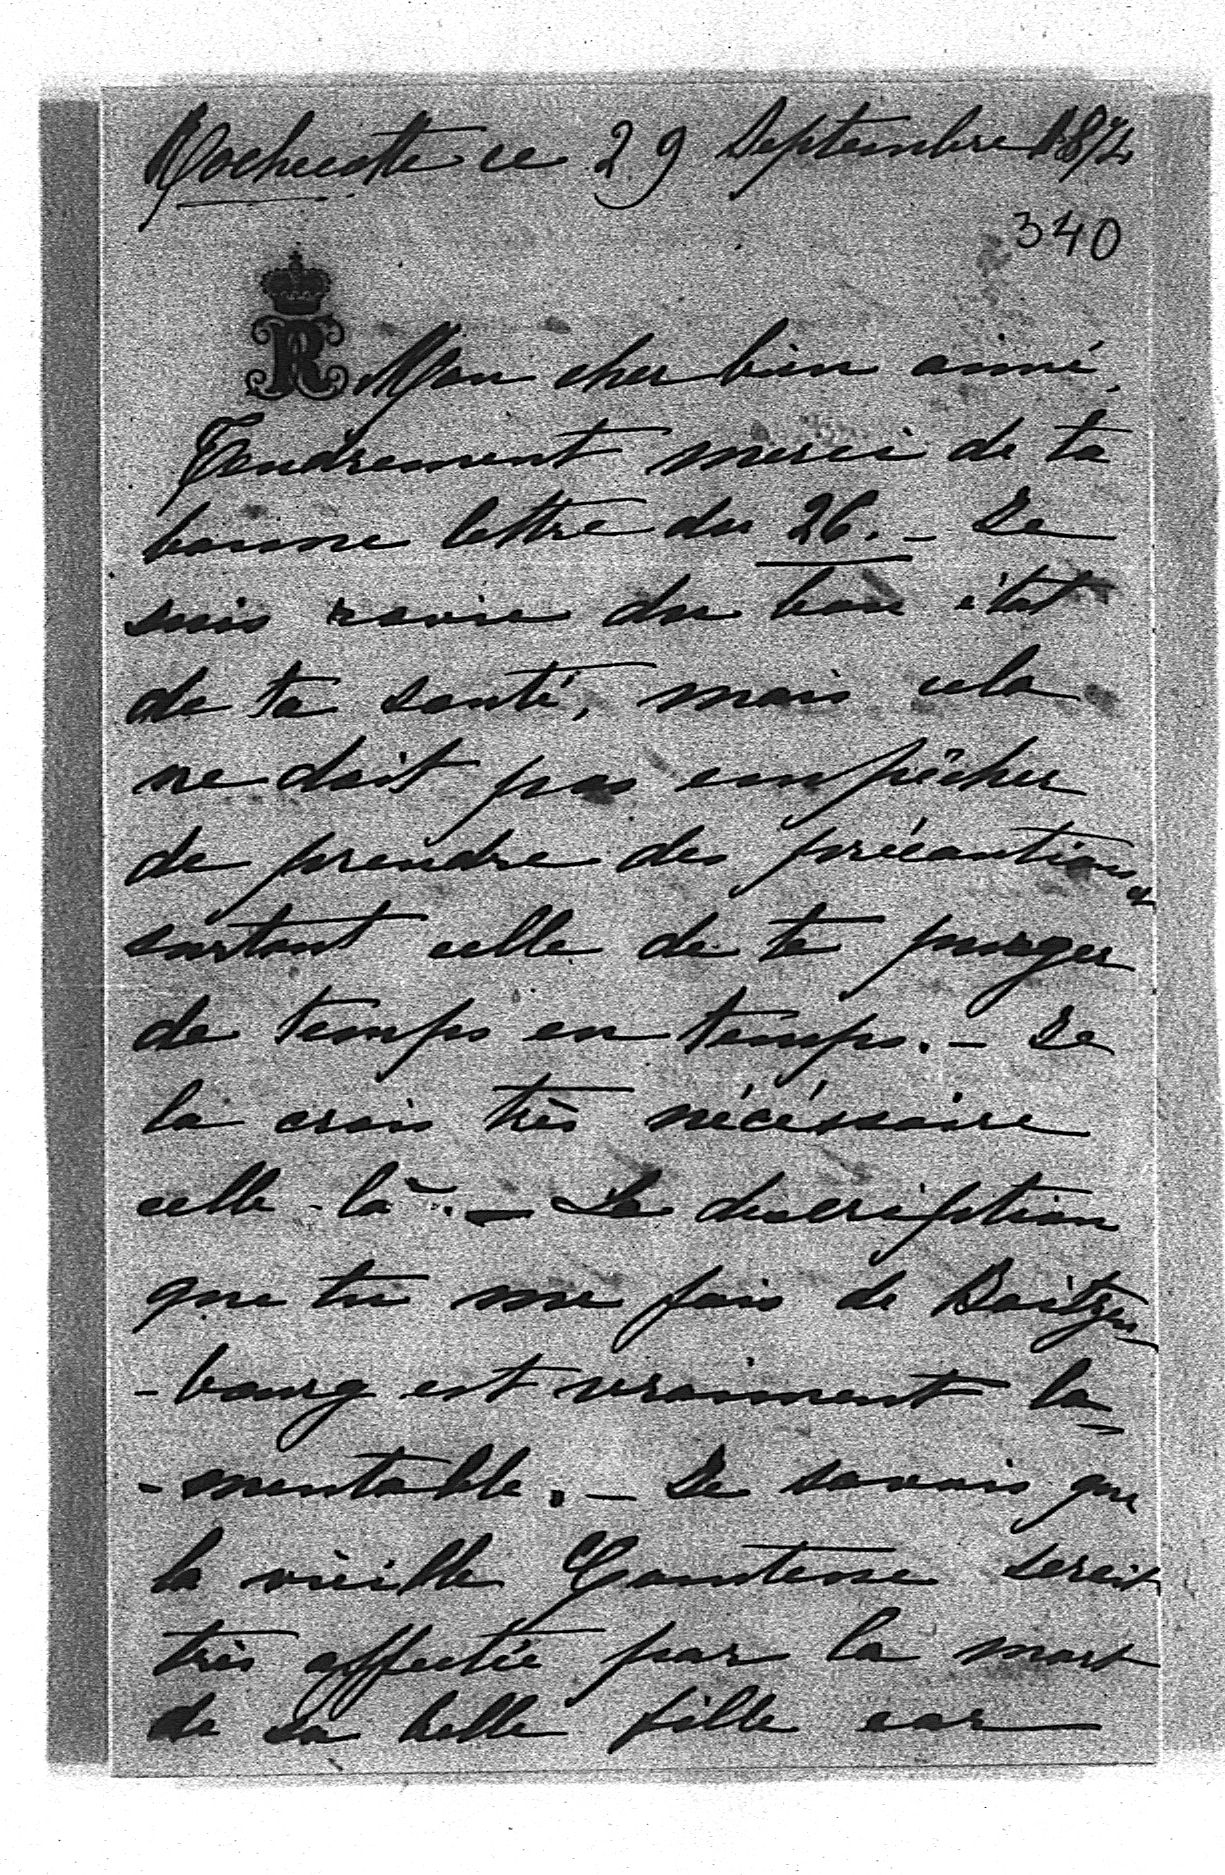 Rochecotte ce 29 Septembre 1872
340
R Mon cher bien aimé,
Tendrement merci de ta
bonne lettre du 26. – Je
suis ravie du bon état
de ta santé, mais cela
ne doit pas empêcher
de prendre des précautions,
surtout celle de te purger
de temps en temps. – Je
la crois très nécéssaire
celle-là. – La description
que tu me fais de Boitzen-
-bourg est vraiment la-
-mentable. – Je savais que
la vieille Comtesse serait
très affectée par la mort
de sa belle fille car